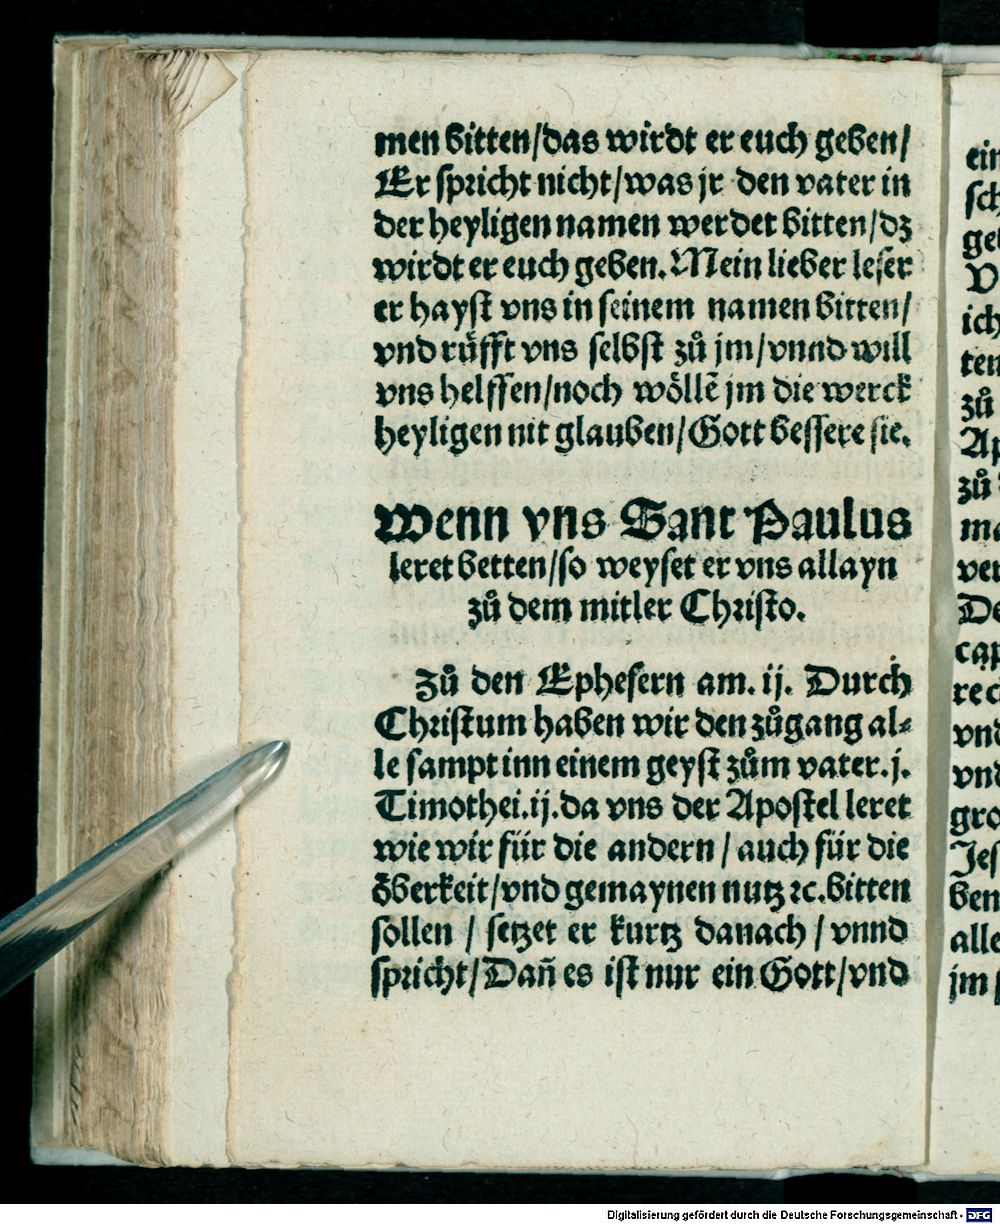 men bitten/das wirdt er euch geben/
Er spricht nicht/was jr den vater in
der heyligen namen werdet bitten/dz
wirdt er euch geben. Mein lieber leser
er hayst vns in seinem namen bitten/
vnd rüfft vns selbst zů jm/vnnd will
vns helffen/noch wöllẽ jm die werck
heyligen nit glauben/Gott bessere sie.
Wenn vns Sant Paulus
leret betten/so weyset er vns allayn
zů dem mitler Christo.
Zů den Ephesern am. ij. Durch
Christum haben wir den zůgang al⸗
le sampt inn einem geyst zům vater. j.
Timothei. ij. da vns der Apostel leret
wie wir für die andern / auch für die
öberkeit/vnd gemaynen nutz ꝛc. bitten
sollen / setzet er kurtz danach / vnnd
spricht/Dañ es ist nur ein Gott/vnd
ein
sch
geb
V
ich
ten
zů
Ap
zů
ma
ver
De
cap
rec
vnd
vnd
gro
Jes
ben
alle
jm s
Digitalisierung gefördert durch die Deutsche Forschungsgemeinschaft - DFG